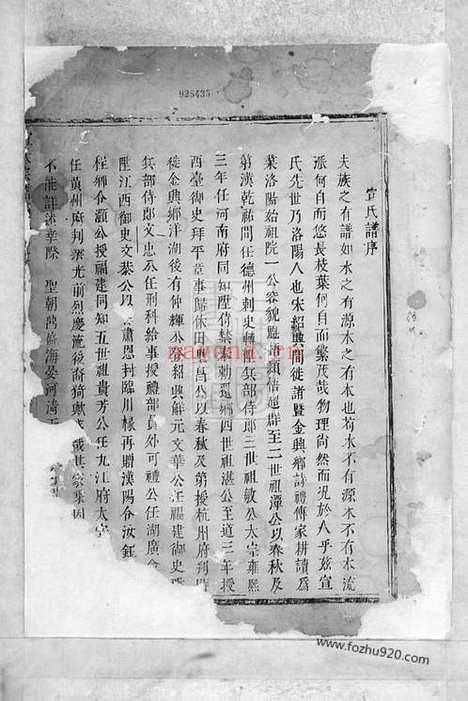 928435
宣氏譜序
夫族之有譜如水之有源木之有本也苟水不有源木不有本流
派何自而悠長枝葉何自而繁茂哉物理尚然而况於人乎茲宣
氏先世乃洛陽人也宋紹興間徙諸暨金興鄉詩禮傳家耕讀爲
業洛陽始祖院一公容貌魁
類悟超群至二世祖潭公以春秋及
第漢乾祐間任德州刺史
兵部侍郎三世祖敏公太宗雍熙
三年任河南府同知陞侍禁
勅還鄉四世祖湛公至道三年授
西臺御史拜平章事歸休田
昌公以春秋及第授杭州府判
徙金興鄉洋湖後有仲輝公
紹興解元文華公任福建御史
兵部侍郎文忠公任刑科給事授禮部員外可禮公任湖廣僉
陞江西御史文葉公以
肅恩封臨川椽再贈漢陽令汝鈺
程鄉令灝公授福建同知五世祖貴芳公任九江府太守
任黃州府判
光前烈慶流後裔猗歟
哉其
不能詳述幸際
聖朝
海晏河清
nayona.cn
www.fozhu920.com